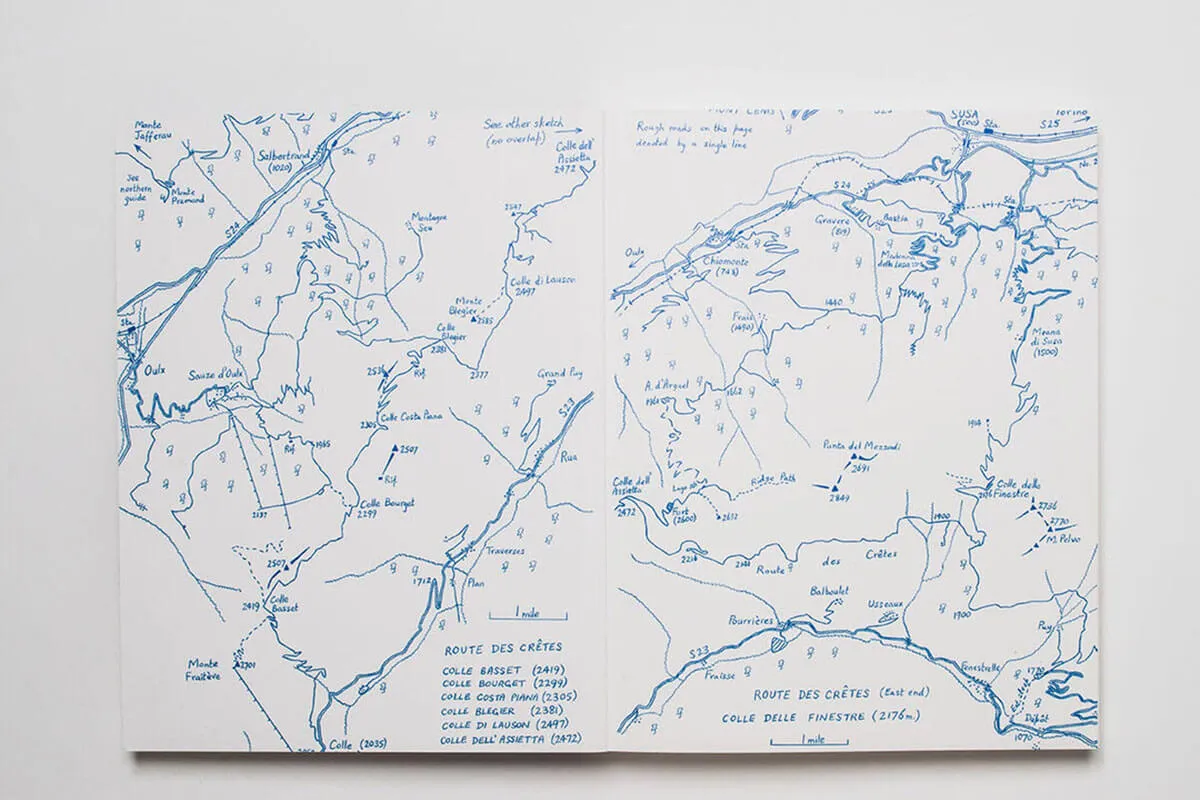 Monte
Jafferau
See
northern
guide
Monte
Pramand
Salbertrand
(1020)
Sta.
S24
See other sketch
(no overlap)
Colle dell'
Assietta
2472
2547
Montagne
Seu
Colle di Lauson
2497
Monte
Blegier
2585
Colle
Blegier
2381
2377
Sta.
Oulx
Sauze d'Oulx
2536
Rif.
Grand Puy
S23
2305
Colle Costa Piana
Rua
Rif.
1985
2507
Rif.
Colle Bourget
2299
2137
2507
Traverses
1712
Plan
2419
Colle
Basset
1 mile
Monte
Fraitève
2701
ROUTE DES CRÊTES
COLLE BASSET (2419)
COLLE BOURGET (2299)
COLLE COSTA PIANA (2305)
COLLE BLEGIER (2381)
COLLE DI LAUSON (2497)
COLLE DELL'ASSIETTA (2472)
Colle (2035)
MONT CENIS
SUSA
(500)
Sta.
S25
Torino
Rough roads on this page
denoted by a single line
S24
Sta.
Gravere
(819)
Bastia
Oulx
Sta.
Chiomonte
(748)
Madonna
della Losa
1440
Frais
(1490)
Meana
di Susa
(1500)
A. d'Arguel
1662
1914
Punta del Mezzodi
2691
Colle dell'
Assietta
2472
Lago
Ridge Path
2849
Colle delle
Finestre
2176
Fort
(2600)
2612
1900
2736
2770
M. Pelvo
Route des Crêtes
Balboutet
Usseaux
1900
Pourrières
Puy
S23
Fraisse
Fenestrelle
ROUTE DES CRÊTES (East end)
COLLE DELLE FINESTRE (2176m.)
Dépôt
1070
1 mile